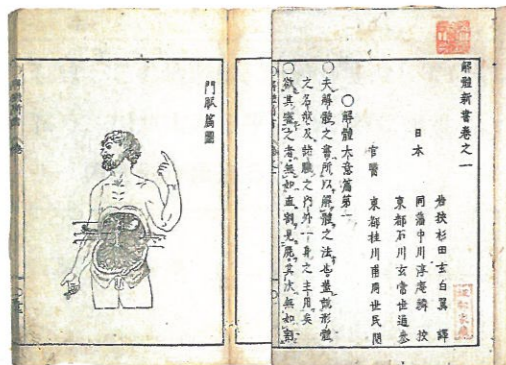 解體新書卷之一
若狹杉田玄白翼 譯
日本 同藩中川淳庵鱗 校
東都石川玄常世通 參
官醫 東都桂川甫周世民 閱
○解體大意篇第一
○夫解體之書所以解體之法也盖就形體
之名狀及諸臟之內外一身之主用矣
○欲其審之者無如直割見屍其次無如割
門脈篇圖